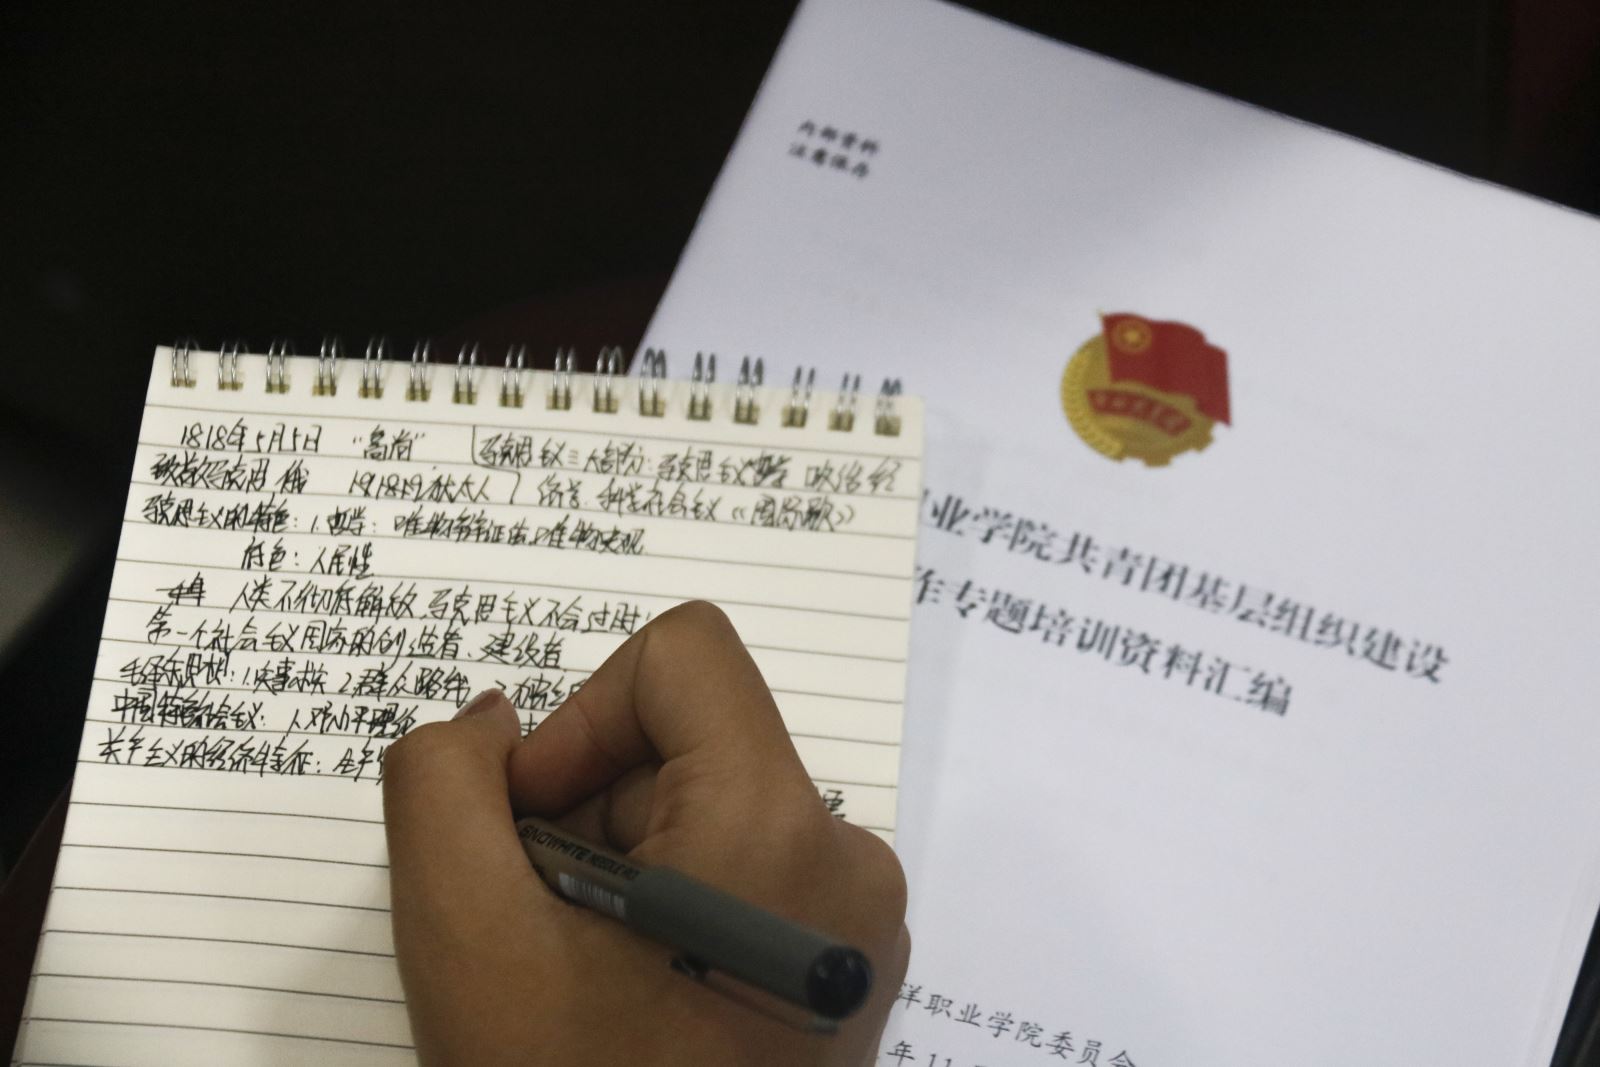 1818年5月5日 "高尚"
马克思主义三大部分：马克思主义哲学 政治经
致敬马克思 俄 犹太人
济学 科学社会主义《国际歌》
马克思主义的特色：1.哲学：唯物辩证法、唯物史观
底色：人民性
人类不彻底解放，马克思主义不会过时！
第一个社会主义国家的创造者、建设者
毛泽东思想：1.实事求是 2.群众路线
中国特色社会主义：1.邓小平理论
关于主义的经济特征：
SNOWHITE NEEDLE
内部资料
注意保存
业学院共青团基层组织建设
作专题培训资料汇编
洋职业学院委员会
年11